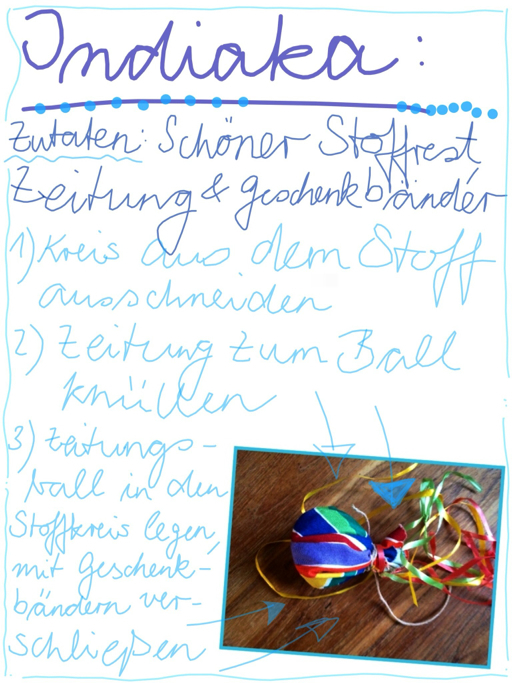 Indiaka:
Zutaten: Schöner Stoffrest,
Zeitung & Geschenkbänder
1) Kreis aus dem Stoff
ausschneiden
2) Zeitung zum Ball
knüllen
3) Zeitungs-
ball in den
Stoffkreis legen,
mit Geschenk-
bändern ver-
schließen